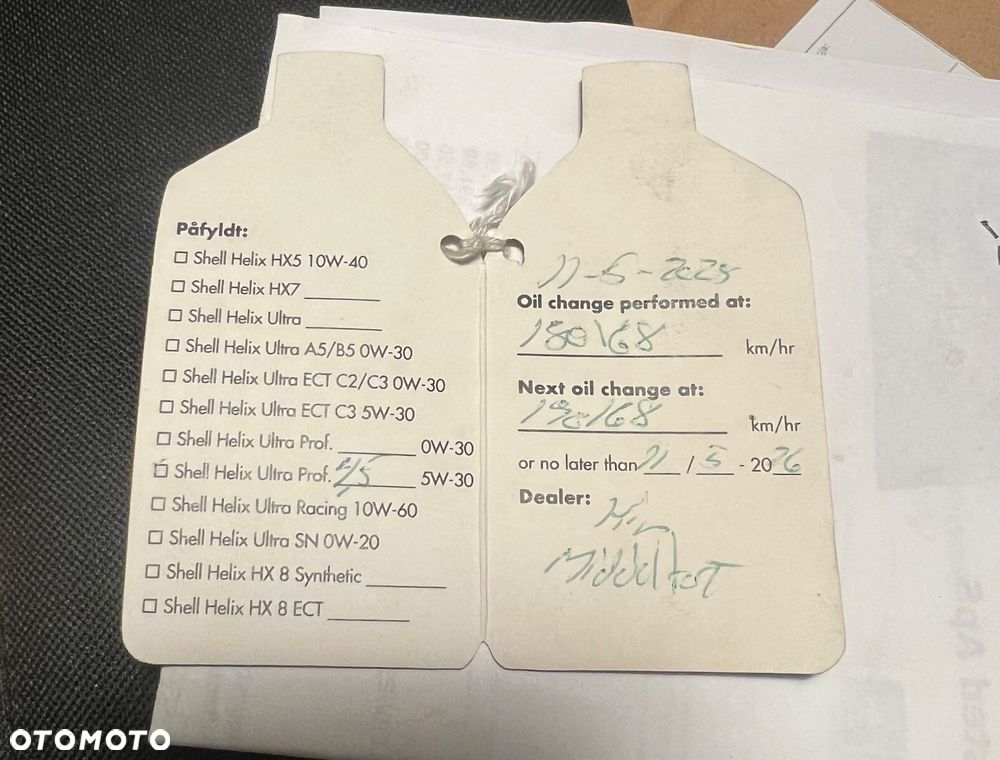 Påfyldt:
Shell Helix HX5 10W-40
Shell Helix HX7
Shell Helix Ultra
Shell Helix Ultra A5/B5 0W-30
Shell Helix Ultra ECT C2/C3 0W-30
Shell Helix Ultra ECT C3 5W-30
Shell Helix Ultra Prof. 0W-30
Shell Helix Ultra Prof. 5W-30
Shell Helix Ultra Racing 10W-60
Shell Helix Ultra SN 0W-20
Shell Helix HX 8 Synthetic
Shell Helix HX 8 ECT
Oil change performed at:
180168 km/hr
Next oil change at:
190168 km/hr
or no later than / 5 - 2026
Dealer:
Middelfart
OTOMOTO